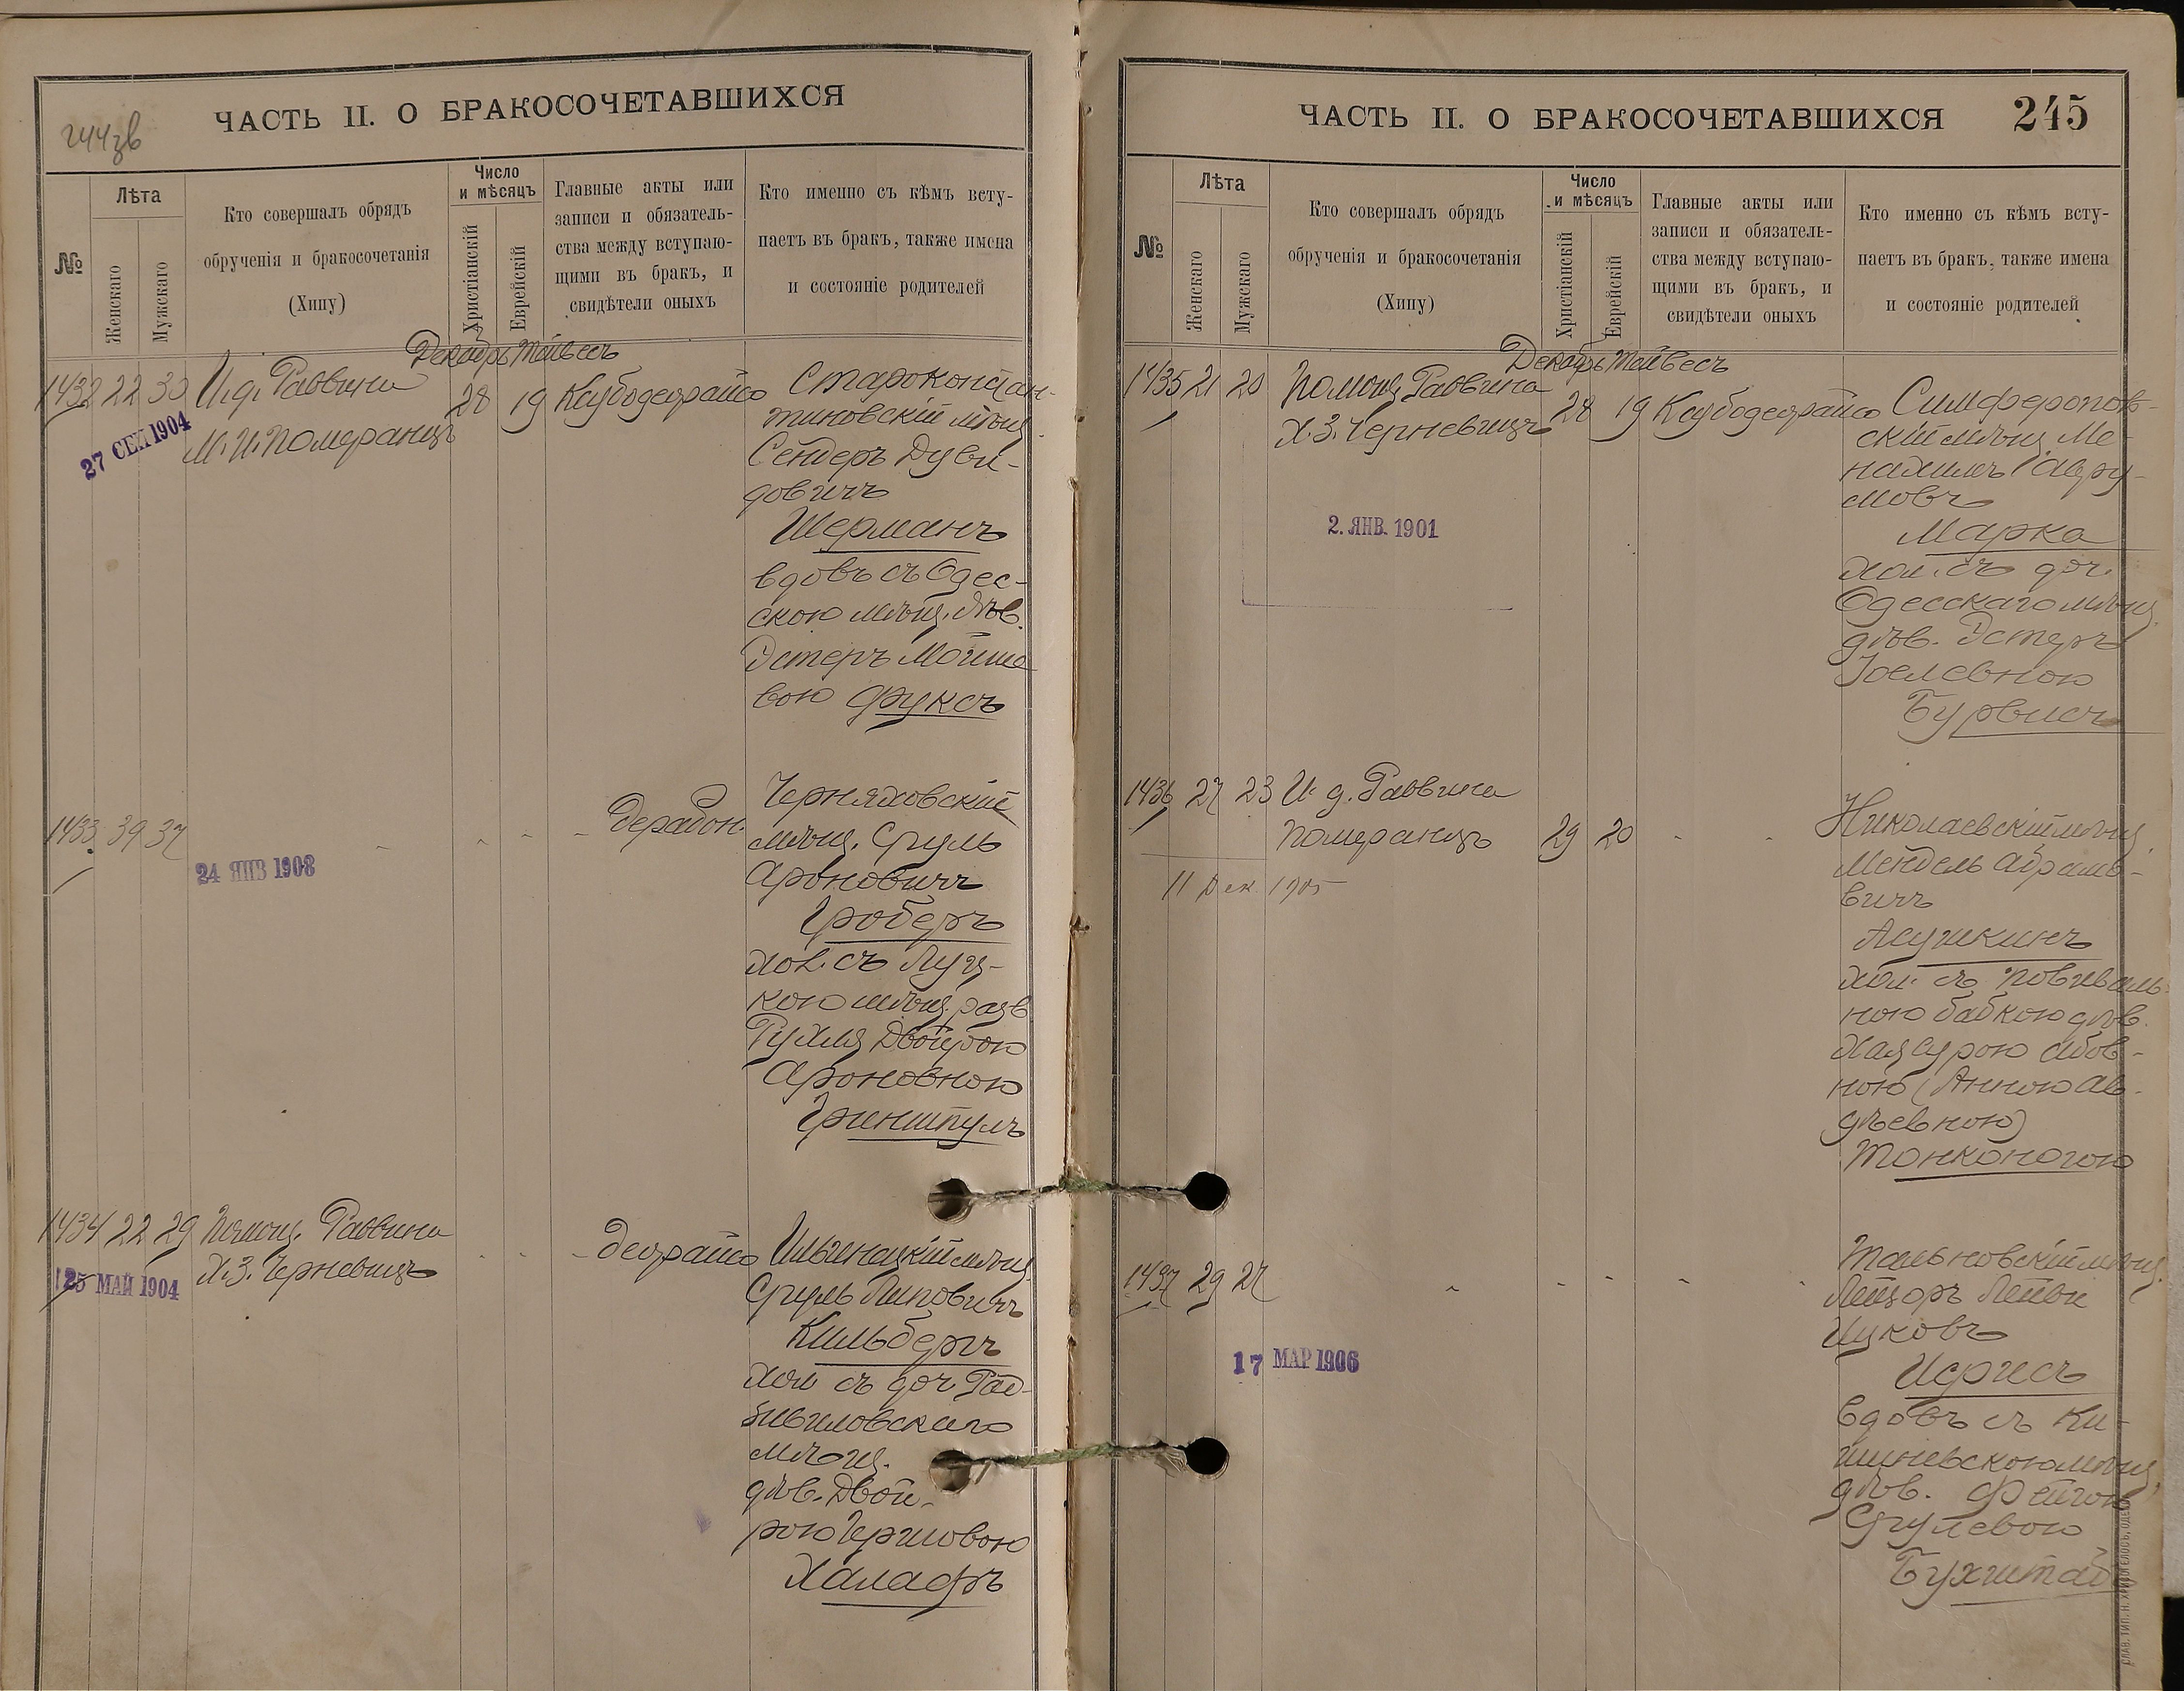 244зв
ЧАСТЬ II. О БРАКОСОЧЕТАВШИХСЯ
№
Лѣта
Женскаго
Мужскаго
Кто совершалъ обрядъ
обрученія и бракосочетанія
(Хипу)
Число
и мѣсяцъ
Христіанскій
Еврейскій
Главные акты или
записи и обязатель-
ства между вступаю-
щими въ бракъ, и
свидѣтели оныхъ
Кто именно съ кѣмъ всту-
паетъ въ бракъ, также имена
и состояніе родителей
Декабрь Тейвесъ
1432 22 30 И. д. Раввина
М. И. Померанцъ
28 19 Ксубодеорайсо
27 СЕН 1904
Староконстан-
тиновскій мѣщ.
Сендеръ Дуви-
довичъ
Шерманъ
вдовъ съ Одес-
скою мѣщ. дѣв.
Эстеръ Мойше
вою Фуксъ
1433 39 37
24 ЯНВ 1908
Дерабон.
Черняховскій
мѣщ. Сруль
Ароновичъ
Гроберъ
хол. съ Луц-
кою мѣщ. разв
Рухля Двойрою
Ароновною
Гринштулъ
1434 22 29 Помощ. Раввина
Х. З. Черневицъ
25 МАЙ 1904
деорайсо
мѣщ.
Сруль Липовичъ
Кильбергъ
хол съ доч Рад-
зивиловскаго
мѣщ.
дѣв. Двой-
рою Гершовою
Халафъ
ЧАСТЬ II. О БРАКОСОЧЕТАВШИХСЯ 245
№
Лѣта
Женскаго
Мужскаго
Кто совершалъ обрядъ
обрученія и бракосочетанія
(Хипу)
Число
и мѣсяцъ
Христіанскій
Еврейскій
Главные акты или
записи и обязатель-
ства между вступаю-
щими въ бракъ, и
свидѣтели оныхъ
Кто именно съ кѣмъ всту-
паетъ въ бракъ, также имена
и состояніе родителей
Декабрь Тейвесъ
1435 21 20 Помощ Раввина
Х. З. Черневицъ
28 19 Ксубодеорайсо
2. ЯНВ. 1901
Симферополь-
скій мѣщ Ме-
нахимъ Авру-
мовъ
Марка
хол. съ доч.
Одесскаго мѣщ.
дѣв. Эстеръ
Іоелевною
Бурвисъ
1436 27 23 И. д. Раввина
Померанцъ
29 20
11 Дек 1905
Николаевскій мѣщ.
Мендель Абрамо-
вичъ
хол. съ повиваль-
ною бабкою дѣв.
Хая Сурою Абов-
ною (Анною Ав-
дѣевною)
Тонконогою
1437 29 27
17 МАР 1906
Тальновскій мѣщ.
Лейзоръ Лейви
Ицковъ
вдовъ съ Ки-
шиневскою мѣщ.
дѣв. Фейгою
Срулевою
Бухштабъ